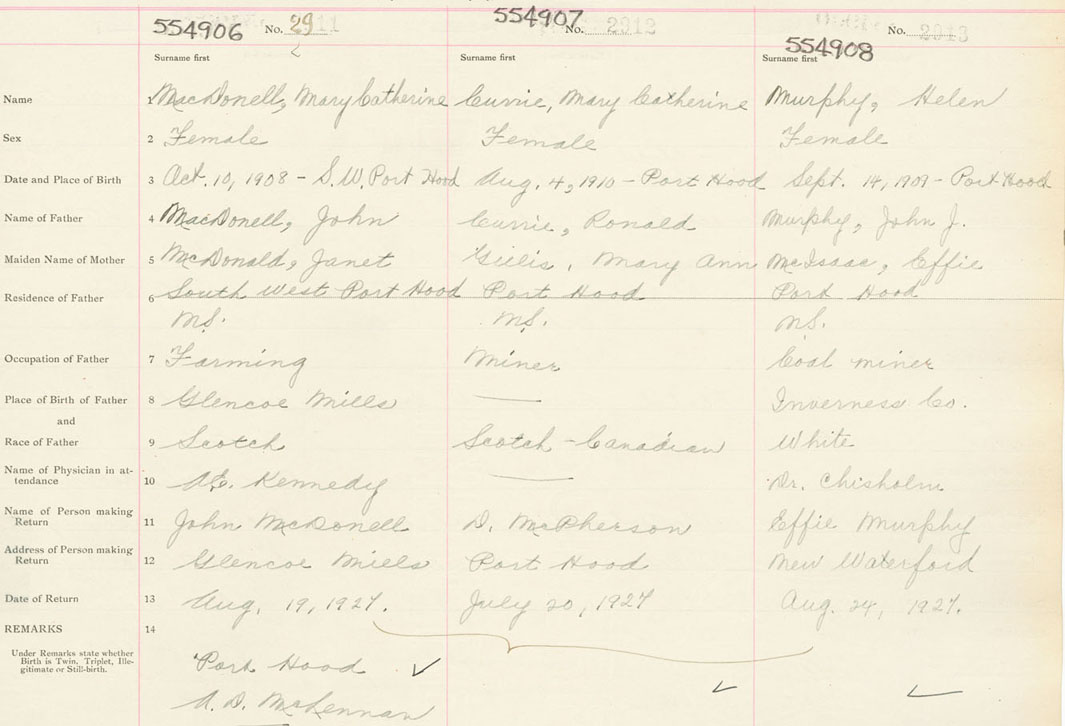 554906 No. 2911 554907 No. 2912 554908 No. 2913
Surname first Surname first Surname first
Name 1 MacDonell, Mary Catherine Currie, Mary Catherine Murphy, Helen
Sex 2 Female Female Female
Date and Place of Birth 3 Oct. 10, 1908 - S.W. Port Hood Aug. 4, 1910 - Port Hood Sept. 14, 1909 - Port Hood
Name of Father 4 MacDonell, John Currie, Ronald Murphy, John J.
Maiden Name of Mother 5 McDonald, Janet Gillis, Mary Ann McIsaac, Effie
Residence of Father 6 South West Port Hood Port Hood Port Hood
N.S. N.S. N.S.
Occupation of Father 7 Farming Miner Coal miner
Place of Birth of Father 8 Glencoe Mills — Inverness Co.
and
Race of Father 9 Scotch Scotch-Canadian White
Name of Physician in at-
tendance 10 Kennedy — Dr. Chisholm
Name of Person making
Return 11 John McDonell D. McPherson Effie Murphy
Address of Person making
Return 12 Glencoe Mills Port Hood New Waterford
Date of Return 13 Aug. 19, 1927. July 20, 1927 Aug. 24, 1927.
REMARKS 14
Under Remarks state whether
Birth is Twin, Triplet, Ille-
gitimate or Still-birth.
Port Hood ✓
A. D. McLennan ✓ ✓